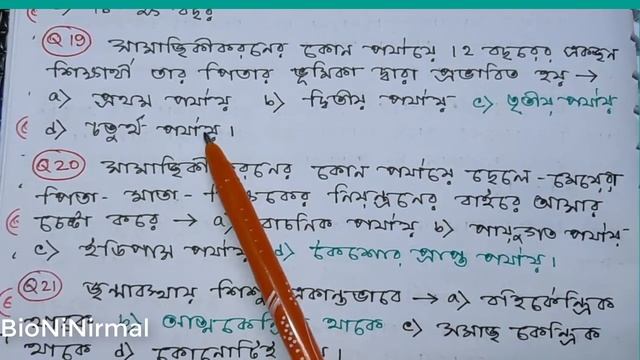 Q19 সামাজিকীকরনের কোন পর্যায়ে 12 বছরের একজন
শিক্ষার্থী তার পিতার ভূমিকা দ্বারা প্রভাবিত হয় →
a> প্রথম পর্যায় b> দ্বিতীয় পর্যায় c> তৃতীয় পর্যায়
d> চতুর্থ পর্যায়।
Q20 সামাজিকীকরনের কোন পর্যায়ে ছেলে-মেয়েরা
পিতা-মাতা- নিয়ন্ত্রনের বাইরে আসার
চেষ্টা করে → a> বাচনিক পর্যায় b> পায়ুগত পর্যায়
c> ইডিপাস পর্যায় d> কৈশোর প্রাপ্ত পর্যায়।
Q21 ভ্রূনাবস্থায় শিশু একান্তভাবে → a> বহির্কেন্দ্রিক
থাকে b> আত্মকেন্দ্রিক থাকে c> সমাজ কেন্দ্রিক
থাকে d> কোনোটিই নয়।
BioNiNirmal